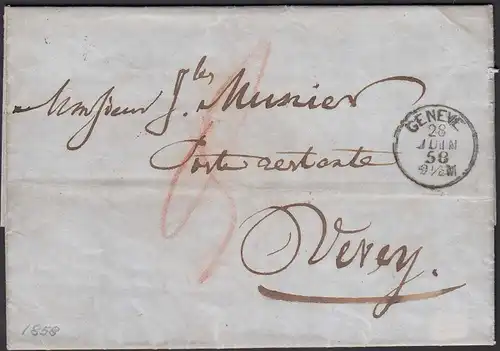 Monsieur J. les Musnier
Poste restante
Vevey.
GENEVE
28
JUIN
58
1858